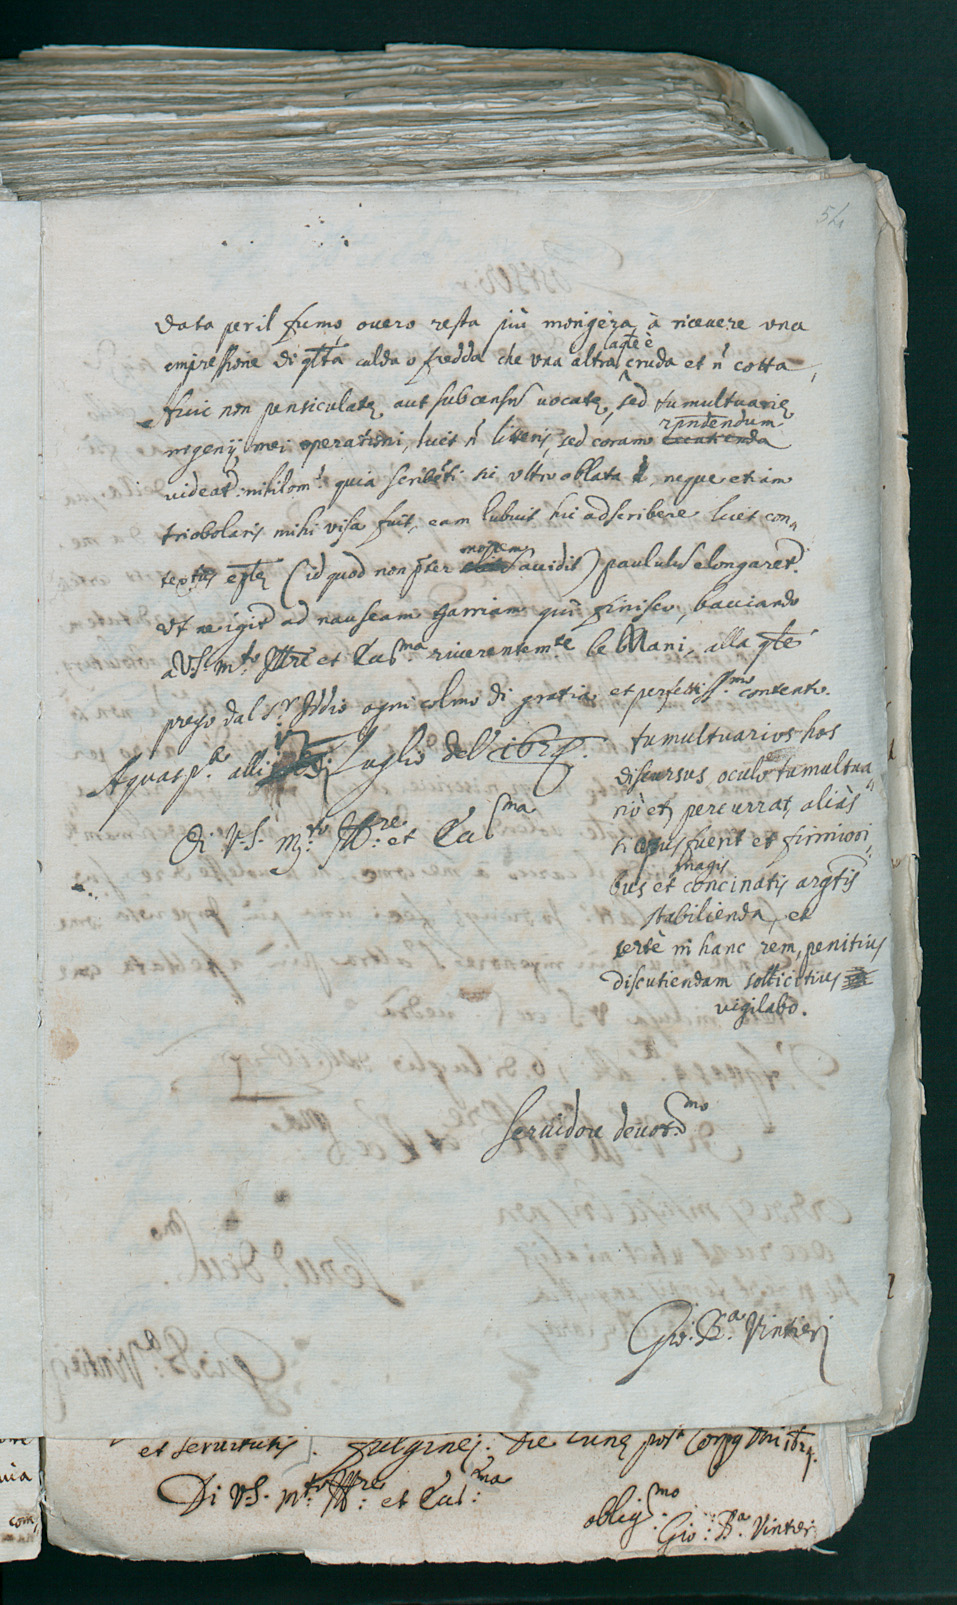 54
data per il fumo ouero resta più morigera à riceuere una
impressione di qltà calda o fredda che una altra acqte è cruda et n̄ cotta,
huic non penticulatę aut subcensu uocatę, sed tumultuarię
ingenij mei operationi, licet n̄ litteris, sed coram rindendum
videat.r nihilom.s quia scribēti sic ultro oblata, neque etiam
triobolaris mihi visa fuit, eam lubuit hic adscribere licet con,
textus eplę (id quod non pter morem auidis) paululu elongaret.r
Ut ne igit.r ad nauseam garriam qui finisco, baciando
a V.S. m.to Ill.re et Ecc.ma riuerentem.te le Mani, alla qle
prego dal S.r Iddio ogni colmo di gratia et perfettiss.mo contento.
Aquasp.ta alli 17 Luglio del 162
Di V.S. m.to Ill.re et Ecc.ma
tumultuarios hos
discursus oculo tumultua,
rio etę percurrat, aliàs
n opus fuerit et firmiori,
bus et magis concinatis argtis
stabilienda, et
certè in hanc rem, penitius
discutiendam sollicitius
vigilabo.
Seruidore deuot.mo
Gio. B.a Vintieri
et seruitutis. Fulginej. Die Lunę post Corpq Dni
Di V.S. m.to Ill.re et Ecc.ma
oblig.mo
Gio: B.a Vintieri